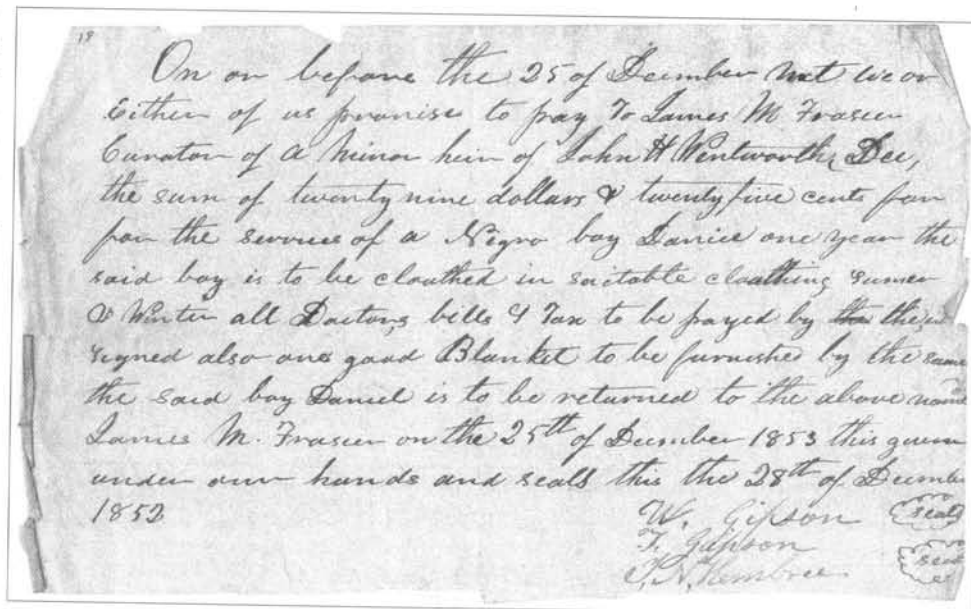 18
On or before the 25 of December next we or
Either of us promise to pay To James M Frasier
Curator of a minor heir of John H Wentworth, Dec,
the sum of twenty nine dollars & twenty five cents for
for the services of a Negro boy Daniel one year the
said boy is to be cloathed in suitable cloathing sumer
& Winter all Doctors bills & Tax to be payed by the
signed also one good Blanket to be furnished by the same
the said boy Daniel is to be returned to the above name
James M. Frasier on the 25th of December 1853 this given
under our hands and seals this the 28th of December
1852
W. Gipson seal
F. Gipson seal